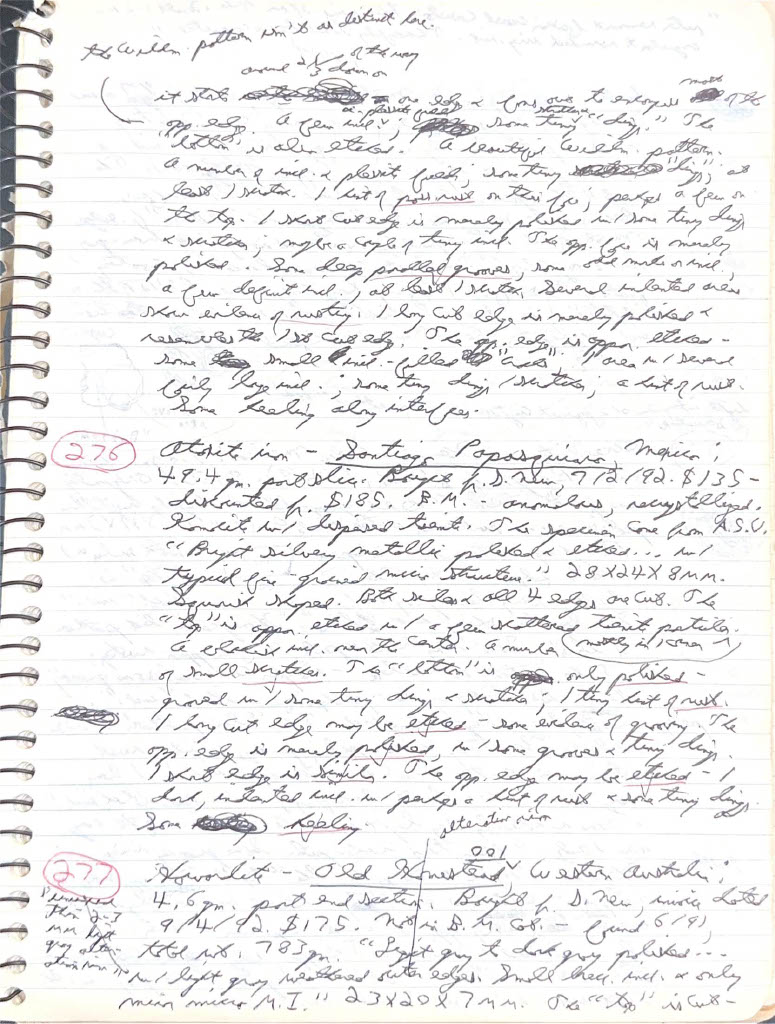 the Widm. pattern isn't as distinct here.
around 2/3 of the way down on
it starts one edge & fans out to encompass most of the
opp. edge. A few incl., some tiny "dings." The
"bottom" is also etched. A beautiful Widm. pattern.
A number of incl. & plessite fields, some tiny "dings", at
least 1 scratch. 1 hint of poss. rust on this face, perhaps a few on
the top. 1 short cut edge is merely polished w/ some tiny dings
& scratches, maybe a couple of tiny incl. The opp. face is merely
polished. Some deep parallel grooves, some odd marks or incl.,
a few definite incl., at least 1 scratch. Several indented areas
show evidence of rusting. 1 long cut edge is merely polished &
resembles the 1st cut edge. The opp. edge is appar. etched -
some small incl.-filled "cracks". 1 area w/ several
fairly long incl., some tiny dings/scratches, a hint of rust.
Some beeling along interfaces.
276 Ataxite iron - Santiago Papasquiaro, Mexico;
49.4 gm. part slice. Bought fr. D. New, 7/2/92. $135 -
discounted fr. $185. B.M. - anomalous, recrystallized.
Kamacite w/ dispersed taenite. The specimen came from A.S.U.
"Bright silvery metallic polished & etched... w/
typical fine-grained micro structure." 28X24X8 MM.
Squarish shaped. Both sides & all 4 edges are cut. The
"top" is appar. etched w/ a few scattered taenite particles.
A incl. near the center. A number (mostly in 1 corner)
of small scratches. The "bottom" is only polished -
grooved w/ some tiny dings & scratches, 1 tiny hint of rust.
1 long cut edge may be etched - some evidence of grooving. The
opp. edge is merely polished, w/ some grooves & tiny dings.
1 short edge is similar. The opp. edge may be etched - 1
dark, indented incl. w/ perhaps a hint of rust & some tiny dings.
Some beeling.
alteration rim
277 Howardite - Old Homestead 001, Western Australia;
4.6 gm. part end section. Bought fr. D. New, invoice dated
9/4/92. $175. Not in B.M. Cat. - found 6/91,
total wt. 783 gm. "Light gray to dark gray polished...
w/ light gray weathered outer edges. Small brec. incl. & only
minor micro M.I." 23X20X7 MM. The "top" is cut -